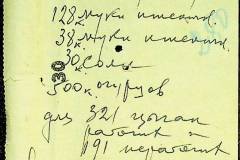 128 к. муки пшенич.
38 к. муки пшенич.
30 к. соли
30
500 к. огурцов
для 321 цыган
работ. и
191 неработ.